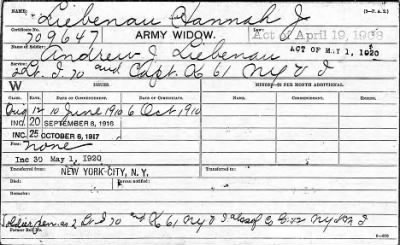 NAME: Liebenau Hannah J. (3—P. A. S.)
Certificate No. ARMY WIDOW. Law:
709647 Act of April 19, 1908
Name of Soldier: ACT OF MAY 1, 1920
Andrew J. Liebenau
Service:
2d Lt. I 70 and Capt. K 61 NY V I
W MINORS—$2 PER MONTH ADDITIONAL.
CLASS. RATE. DATE OF COMMENCEMENT. DATE OF CERTIFICATE. RATE. COMMENCEMENT. ENDING.
Aug 12 10 June 1910 6 Oct 1910
INC. 20 SEPTEMBER 8, 1916
INC. 25 OCTOBER 6, 1917
Fees:
none
Inc 30 May 1, 1920
Transferred from Transferred from
NEW YORK CITY, N. Y.
Died: Bureau notified:
Remarks:
Soldier 2 Lt I 70 and K 61 NY V I also NY
Former Roll No.